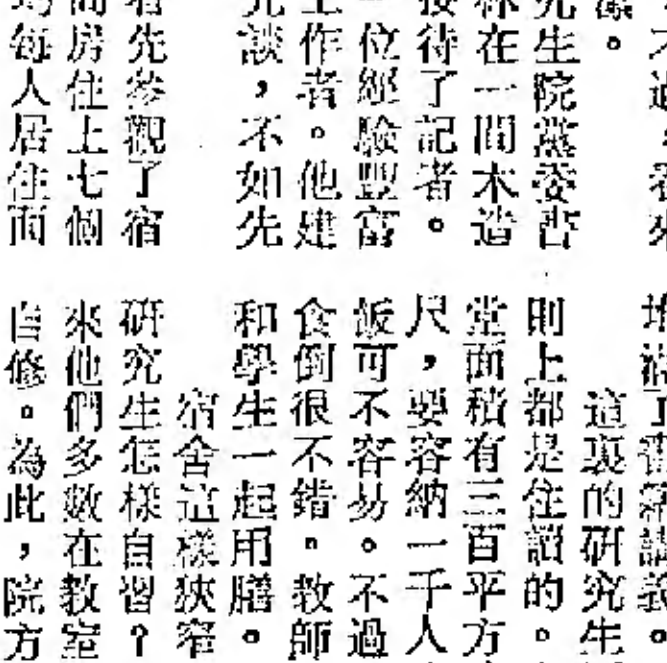 不過，看來
。
生院黨委書
林在一間木造
接待了記者。
位經驗豐富
作者。他建
談，不如先
者先參觀了宿
間房住上七個
均每人居住面
堆滿了書籍講義。
這裏的研究生
則上都是住讀的。
堂面積有三百平方
尺，要容納一千人
飯可不容易。不過
食倒很不錯。教師
和學生一起用膳。
宿舍這樣狹窄
研究生怎樣自習？
來他們多數在教室
自修。為此，院方